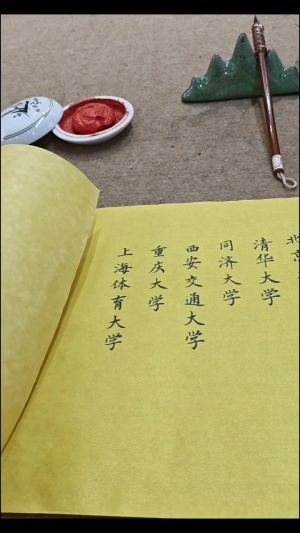 北京
清华大学
同济大学
西安交通大学
重庆大学
上海体育大学